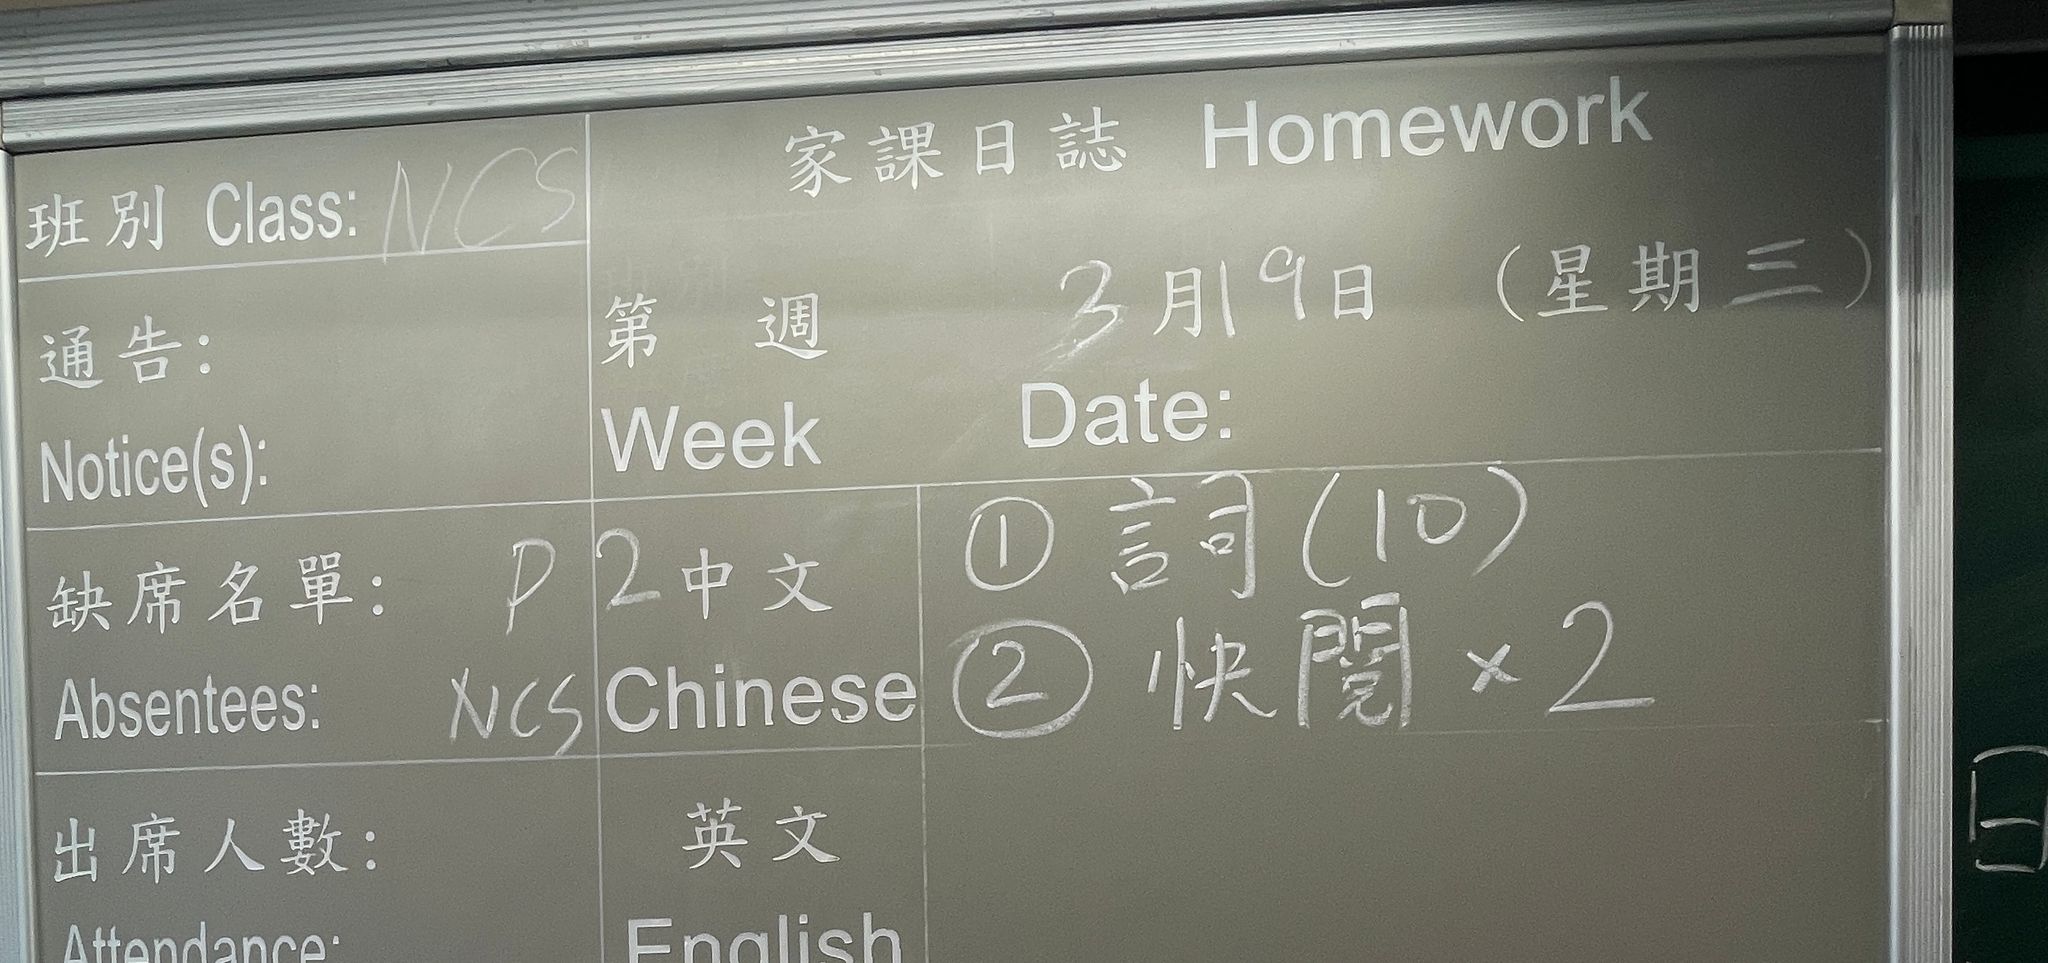 家課日誌 Homework
班別 Class: NCS
通告:
Notice(s):
第 週 3月19日 (星期三)
Week Date:
缺席名單: P2 中文 ① 詞(10)
Absentees: NCS Chinese ② 快閱×2
出席人數: 英文
Attendance: English
日